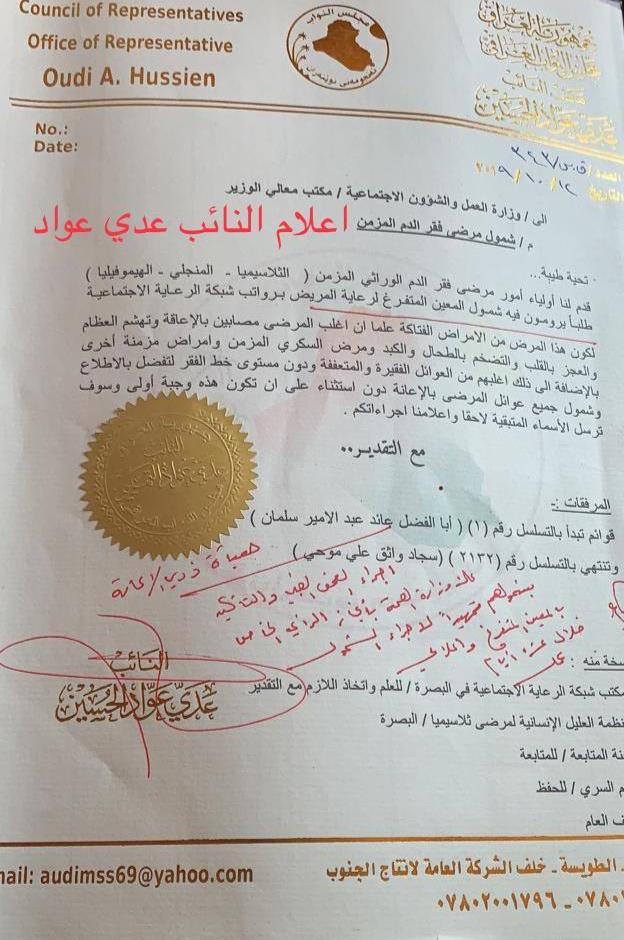 Council of Representatives
Office of Representative
Oudi A. Hussien
مجلس النواب
جمهورية العراق
مجلس النواب العراقي
مكتب النائب
عدي عواد الحسين
No.:
Date:
العدد / ق.س / ٣٤٢
التاريخ ١٢ / ١٠ / ٢٠١٩
الى / وزارة العمل والشؤون الاجتماعية / مكتب معالي الوزير
م / شمول مرضى فقر الدم المزمن
اعلام النائب عدي عواد
تحية طيبة...
قدم لنا أولياء أمور مرضى فقر الدم الوراثي المزمن ( الثلاسيميا - المنجلي - الهيموفيليا )
طلباً يرومون فيه شمول المعين المتفرغ لرعاية المريض برواتب شبكة الرعاية الاجتماعية
لكون هذا المرض من الامراض الفتاكة علما ان اغلب المرضى مصابين بالإعاقة وتهشم العظام
والعجز بالقلب والتضخم بالطحال والكبد ومرض السكري المزمن وامراض مزمنة أخرى
بالإضافة الى ذلك اغلبهم من العوائل الفقيرة و المتعففة ودون مستوى خط الفقر لتفضل بالاطلاع
وشمول جميع عوائل المرضى بالإعانة دون استثناء على ان تكون هذه وجبة أولى وسوف
ترسل الأسماء المتبقية لاحقا واعلامنا اجراءاتكم .
مع التقدير..
المرفقات :-
قوائم تبدأ بالتسلسل رقم (١) ( أبا الفضل عائد عبد الامير سلمان )
وتنتهي بالتسلسل رقم (٢١٣٢) ( سجاد واثق علي موحي )
النائب
عدي عواد الحسين
سخة منه :
مكتب شبكة الرعاية الاجتماعية في البصرة / للعلم واتخاذ اللازم مع التقدير
نظمة العليل الإنسانية لمرضى ثلاسيميا / البصرة
نة المتابعة / للمتابعة
م السري / للحفظ
ف العام
الطويسة - خلف الشركة العامة لانتاج الجنوب
mail: audimss69@yahoo.com
٠٧٨٠٢٠٠١٧٩٦ - ٠٧٨٠